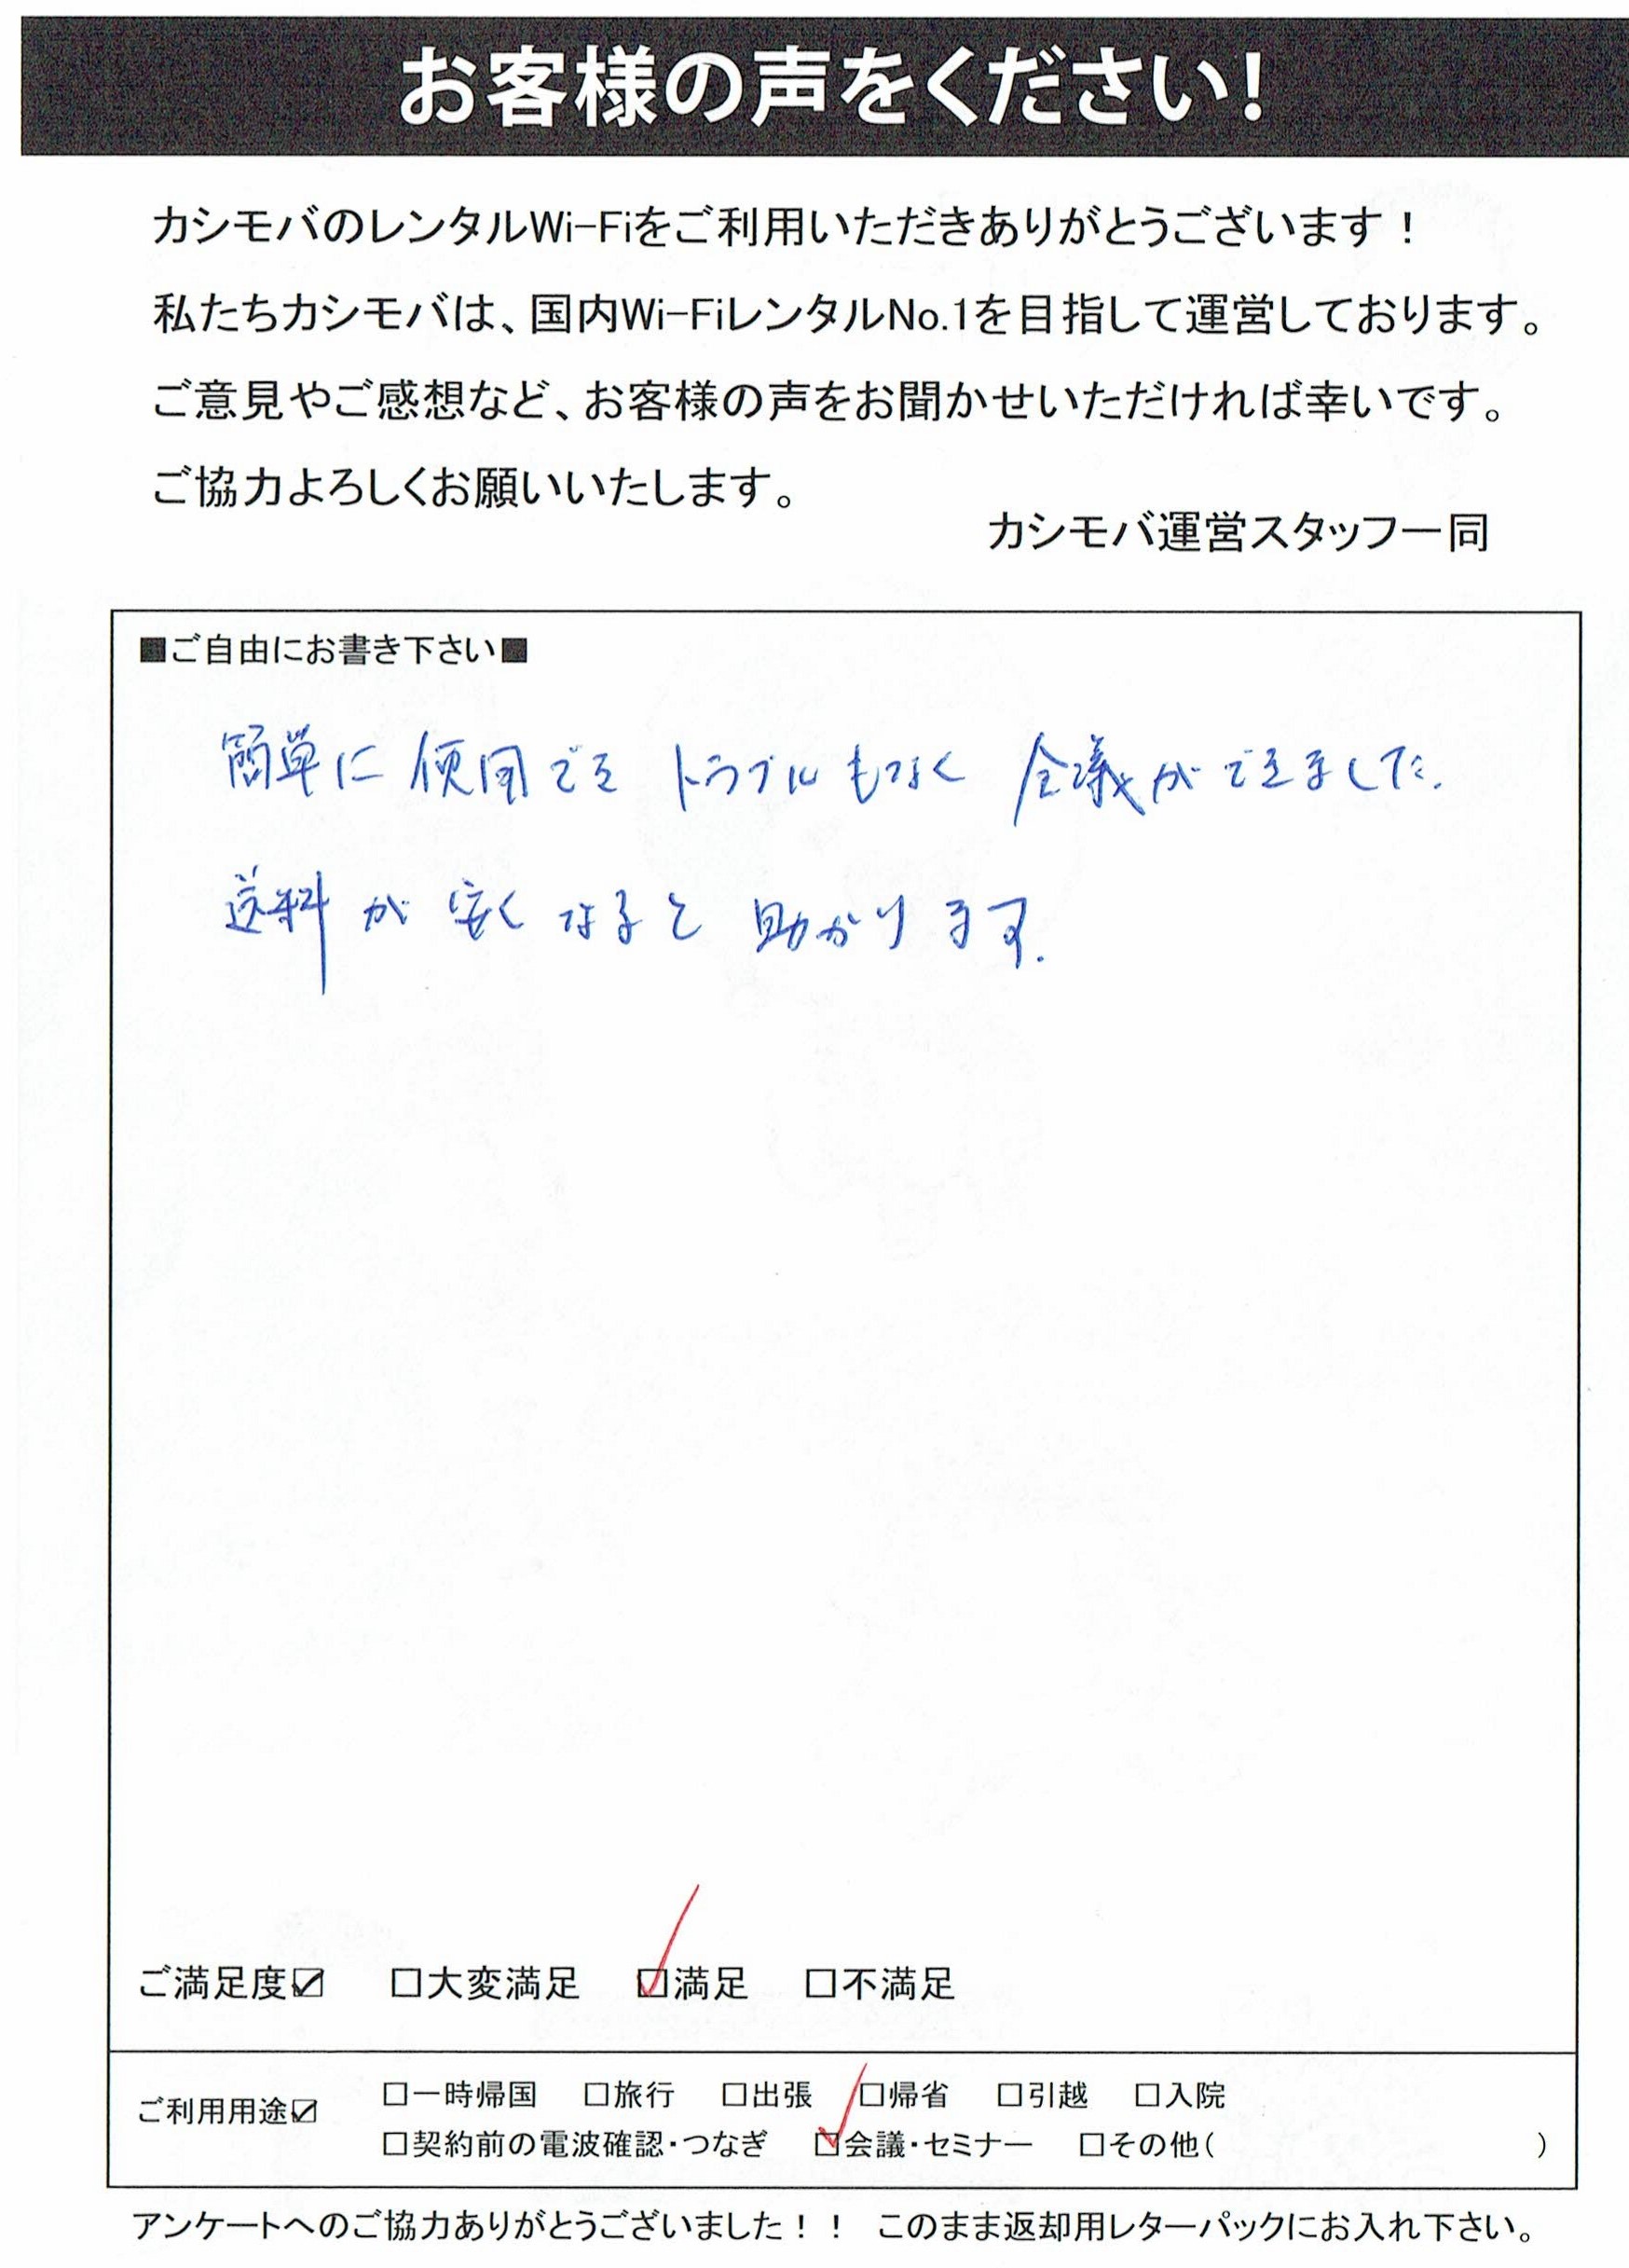 お客様の声をください！
カシモバのレンタルWi-Fiをご利用いただきありがとうございます！
私たちカシモバは、国内Wi-FiレンタルNo.1を目指して運営しております。
ご意見やご感想など、お客様の声をお聞かせいただければ幸いです。
ご協力よろしくお願いいたします。
カシモバ運営スタッフ一同
■ご自由にお書き下さい■
簡単に使用でき トラブルもなく 会議ができました.
送料が安くなると助かります.
ご満足度☑ □大変満足 ☑満足 □不満足
ご利用用途☑ □一時帰国 □旅行 □出張 □帰省 □引越 □入院
□契約前の電波確認・つなぎ ☑会議・セミナー □その他( )
アンケートへのご協力ありがとうございました！！ このまま返却用レターパックにお入れ下さい。